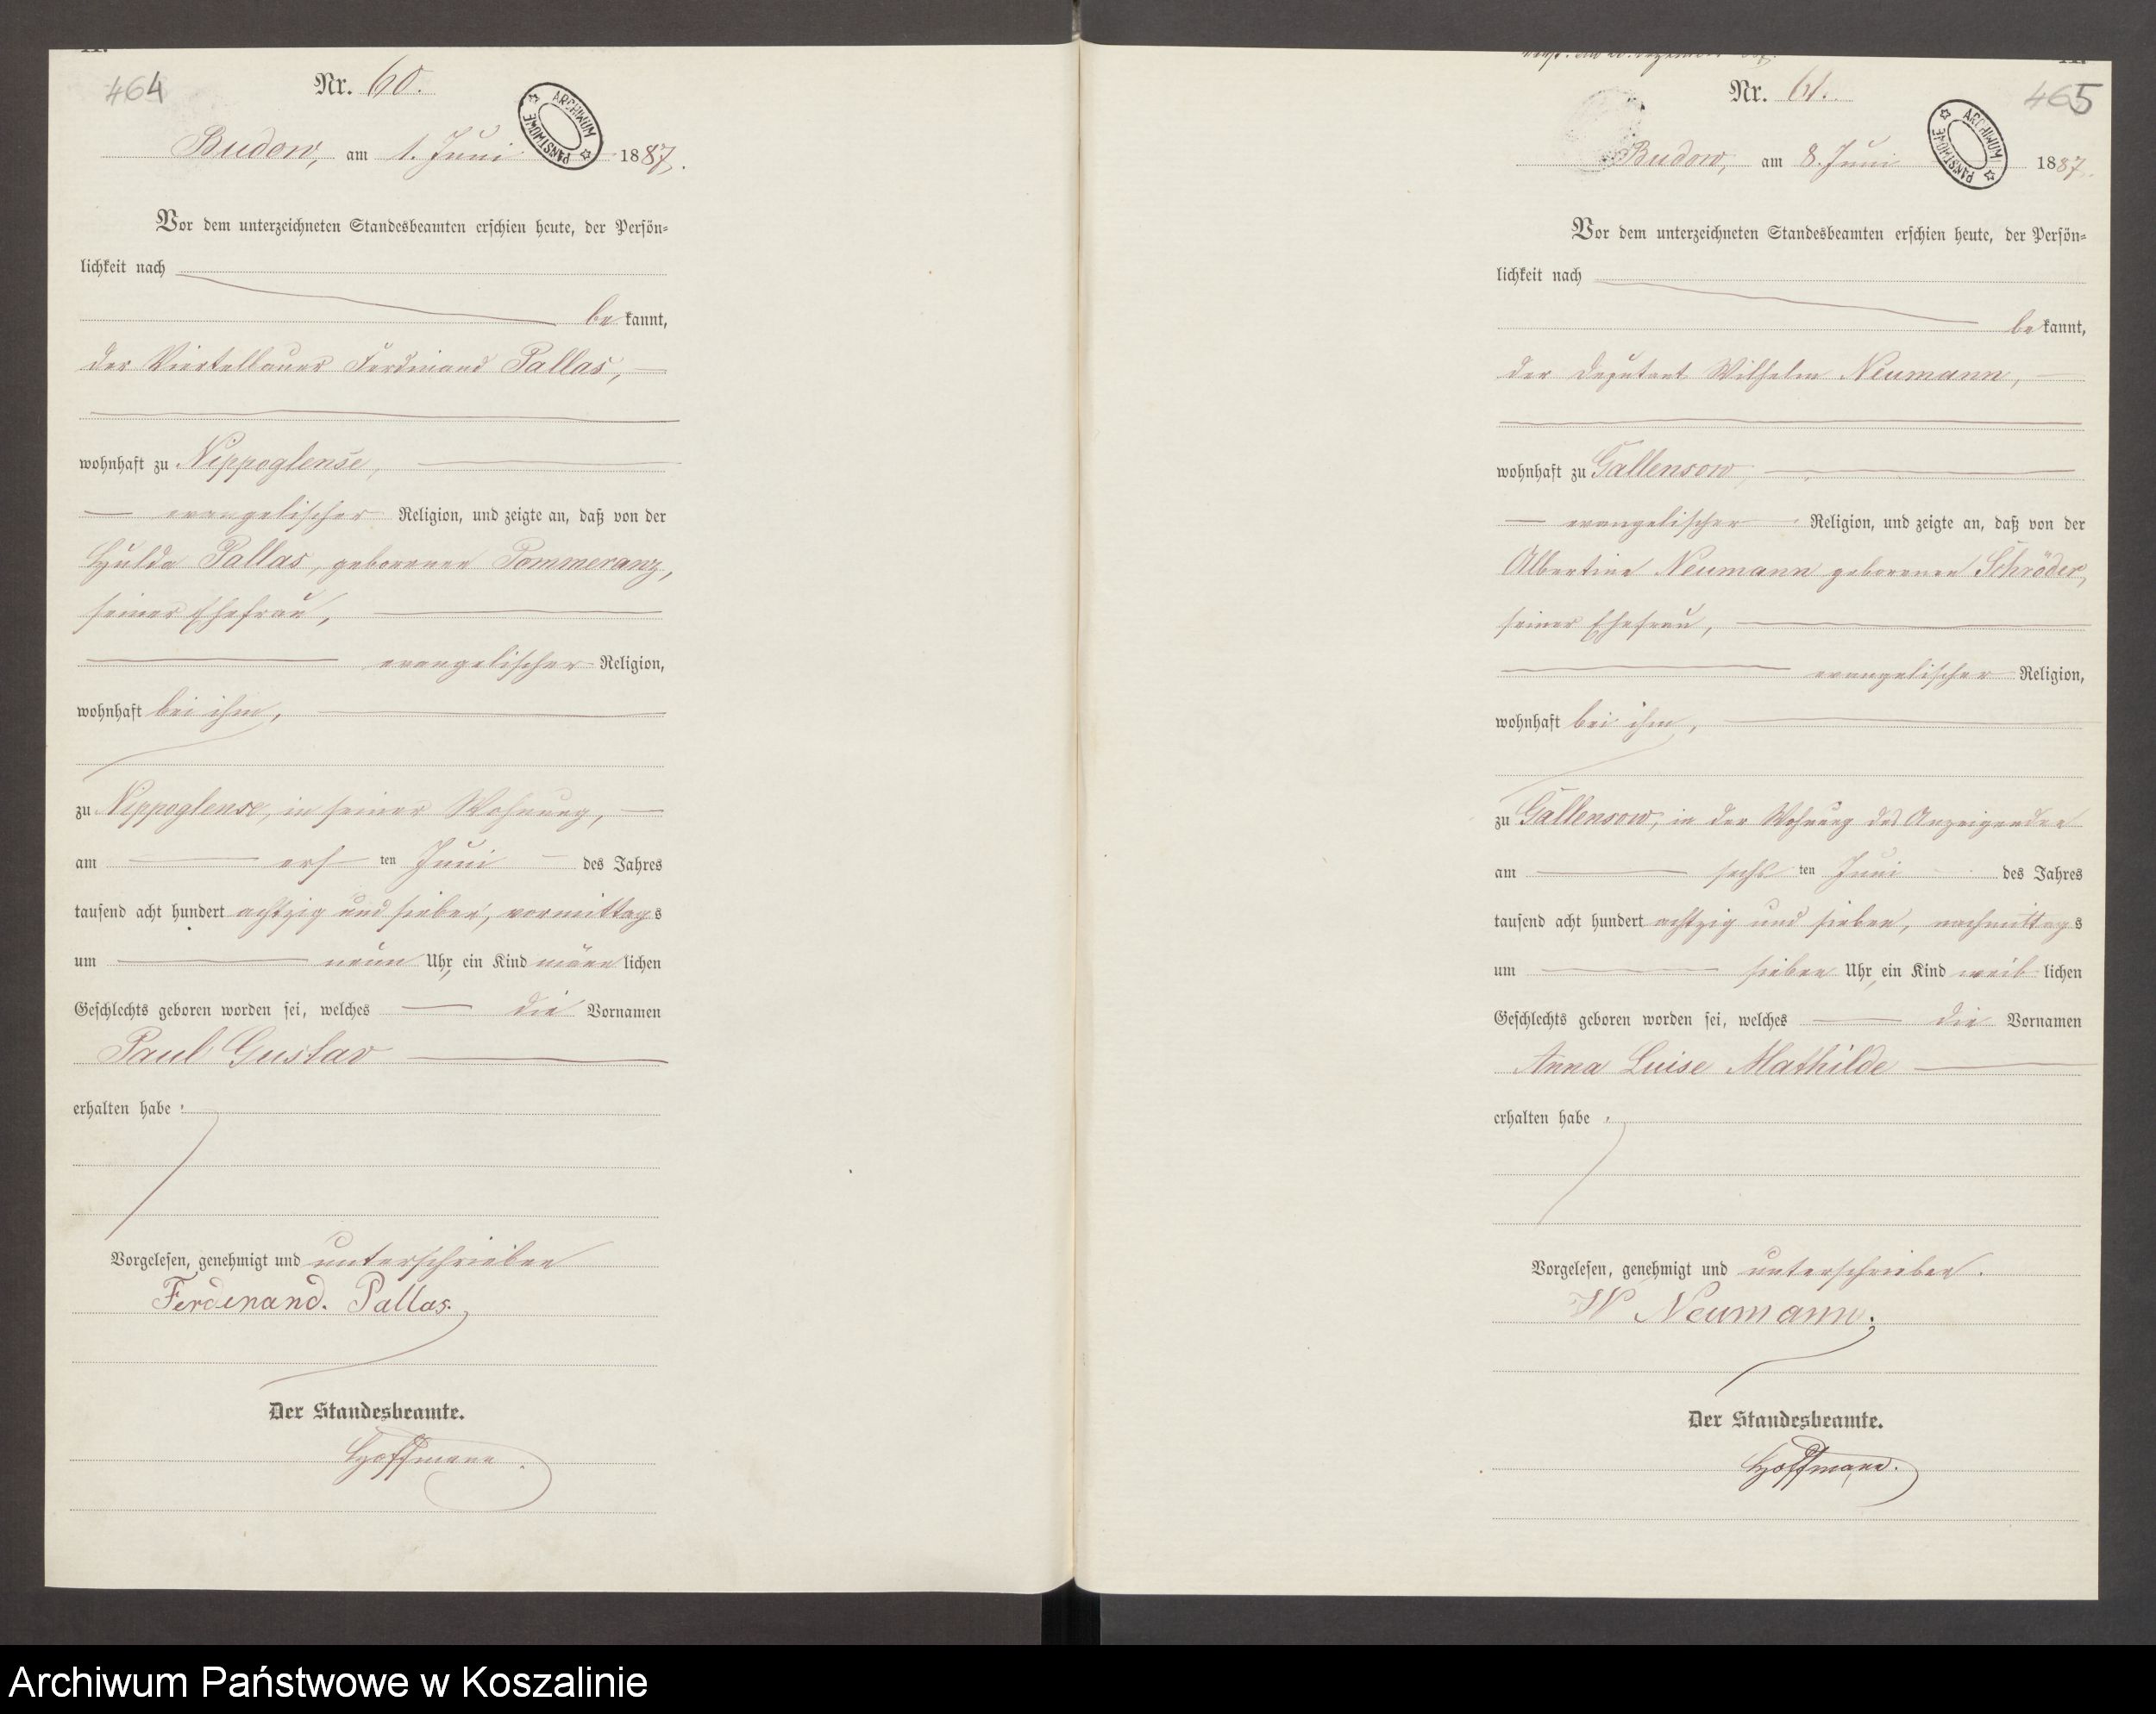 464
Nr. 60.
ARCHIWUM PAŃSTWOWE
Budow, am 1. Juni 1887.
Vor dem unterzeichneten Standesbeamten erschien heute, der Persön-
lichkeit nach
bekannt,
der Viertelbauer Ferdinand Pallas,
wohnhaft zu Nippoglense,
evangelischer Religion, und zeigte an, daß von der
Hulda Pallas, geborenen Pommeranz,
seiner Ehefrau,
evangelischer Religion,
wohnhaft bei ihm,
zu Nippoglense, in seiner Wohnung,
am ersten Juni des Jahres
tausend acht hundert achtzig und sieben, vormittags
um neun Uhr, ein Kind männlichen
Geschlechts geboren worden sei, welches die Vornamen
Paul Gustav
erhalten habe.
Vorgelesen, genehmigt und unterschrieben
Ferdinand. Pallas.
Der Standesbeamte.
Hoffmann.
Nr. 61.
465
ARCHIWUM PAŃSTWOWE
Budow, am 8. Juni 1887.
Vor dem unterzeichneten Standesbeamten erschien heute, der Persön-
lichkeit nach
bekannt,
der Deputant Wilhelm Neumann,
wohnhaft zu Gallensow,
evangelischer Religion, und zeigte an, daß von der
Albertine Neumann geborenen Schröder,
seiner Ehefrau,
evangelischer Religion,
wohnhaft bei ihm,
zu Gallensow, in der Wohnung des Anzeigenden
am sechsten Juni des Jahres
tausend acht hundert achtzig und sieben, nachmittags
um sieben Uhr, ein Kind weiblichen
Geschlechts geboren worden sei, welches die Vornamen
Anna Luise Mathilde
erhalten habe.
Vorgelesen, genehmigt und unterschrieben.
W Neumann.
Der Standesbeamte.
Hoffmann.
Archiwum Państwowe w Koszalinie